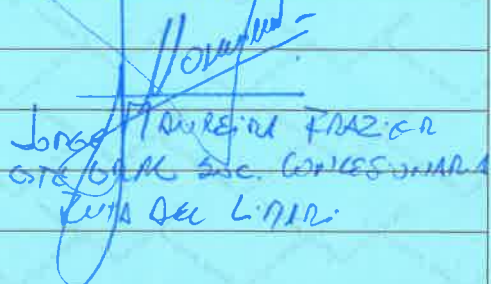 Jorge Maureira Frazier
GTE GRAL SOC. CONCESIONARIA
RUTA DEL LIMARI